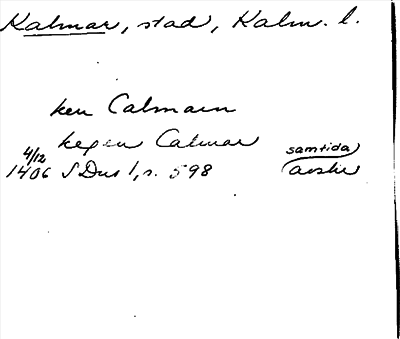 Kalmar, stad, Kalm. l.
ken Calmarn
kegen Calmar
4/12 samtida
1406 SDns 1, s. 598 avskr